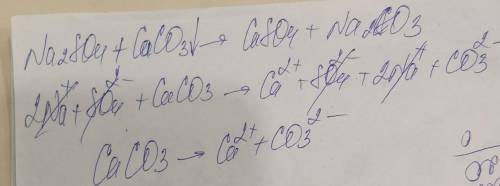 Na2SO4 + CaCO3↓ → CaSO4 + Na2CO3
2Na⁺ + SO4²⁻ + CaCO3 → Ca²⁺ + SO4²⁻ + 2Na⁺ + CO3²⁻
CaCO3 → Ca²⁺ + CO3²⁻